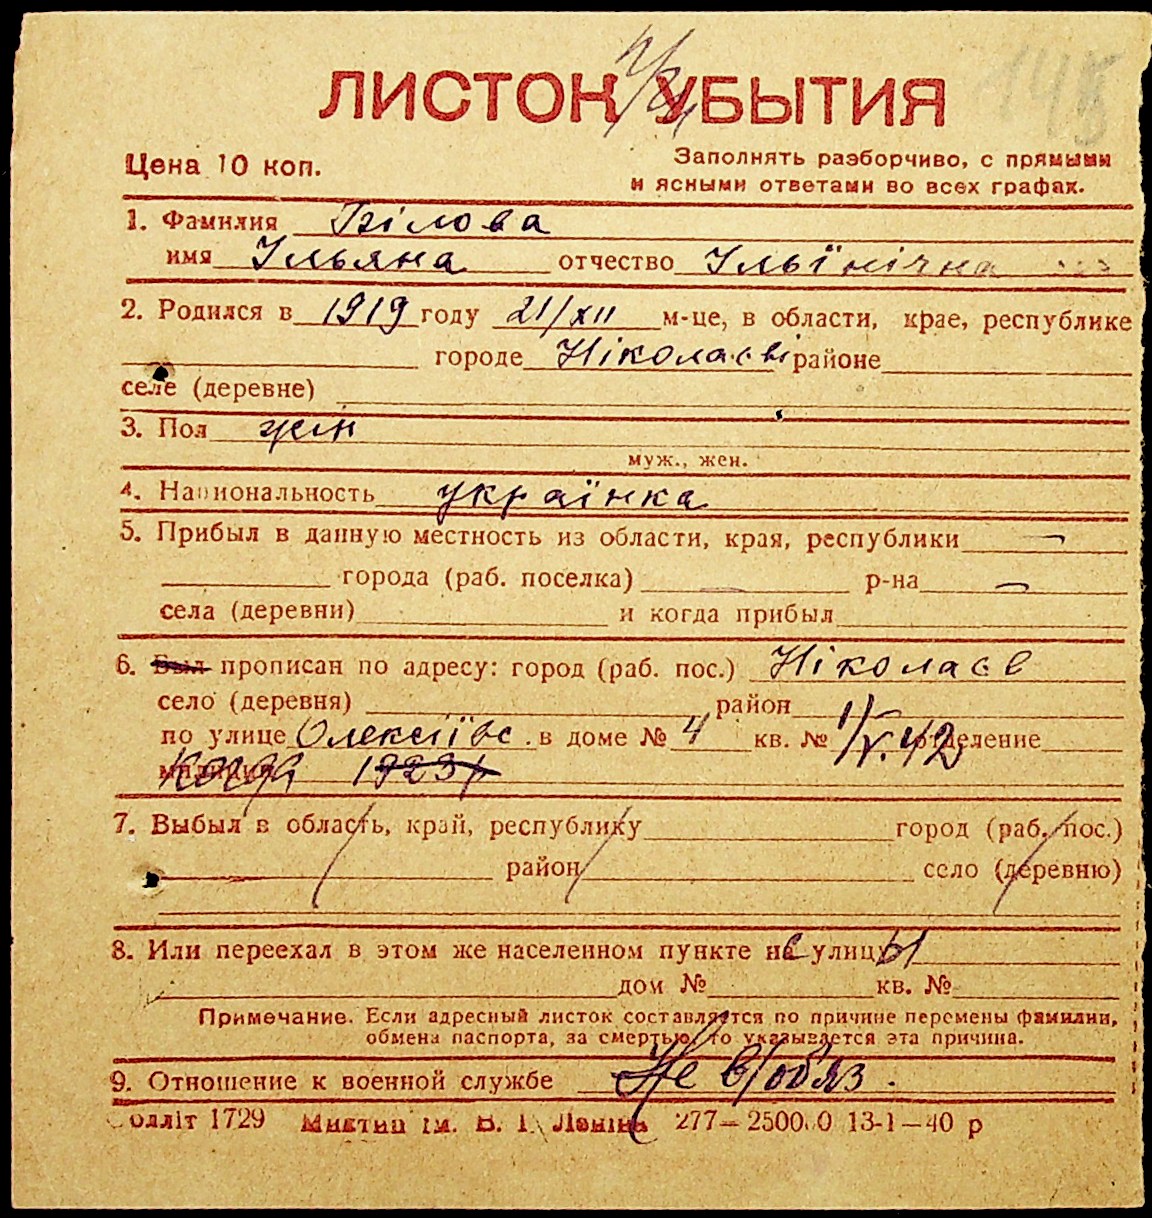 ЛИСТОК УБЫТИЯ
145
Цена 10 коп.
Заполнять разборчиво, с прямыми
и ясными ответами во всех графах.
1. Фамилия Білова
имя Ульяна отчество Ільїнічна
2. Родился в 1919 году 21/XII м-це, в области, крае, республике
городе Ніколаєві районе
селе (деревне)
3. Пол жін
муж., жен.
4. Национальность українка
5. Прибыл в данную местность из области, края, республики —
города (раб. поселка) — р-на —
села (деревни) и когда прибыл
6. Был прописан по адресу: город (раб. пос.) Ніколаєв
село (деревня) район
по улице Олексіївс. в доме № 4 кв. № 1/V.42 отделение
милиции когда 1923р
7. Выбыл в область, край, республику город (раб. пос.)
район село (деревню)
8. Или переехал в этом же населенном пункте на улицу
дом № кв. №
Примечание. Если адресный листок составляется по причине перемены фамилии,
обмена паспорта, за смертью, то указывается эта причина.
9. Отношение к военной службе Не в/обяз.
Одліт 1729 Миктип ім. В. І. Леніна 277—25000 13-1—40 р